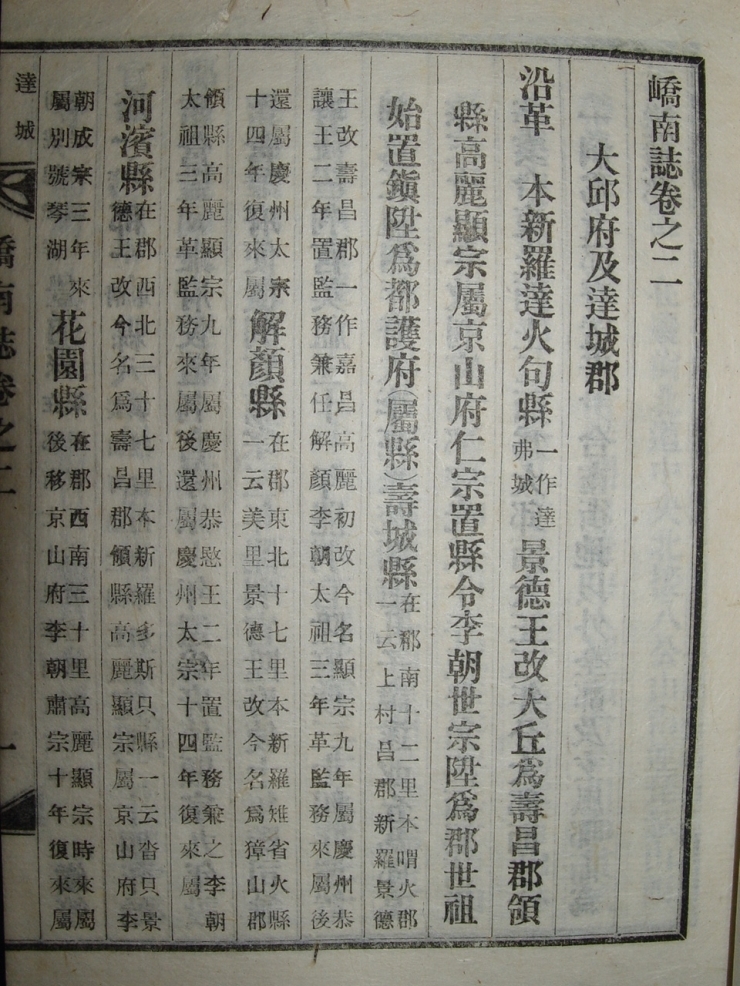 嶠南誌卷之二
大邱府及達城郡
沿革　本新羅達火句縣一作達弗城景德王改大丘爲壽昌郡領
縣高麗顯宗屬京山府仁宗置縣令李朝世宗陞爲郡世祖
始置鎭陞爲都護府(屬縣)壽城縣在郡南十二里本喟火郡一云上村昌郡新羅景德
王改壽昌郡一作嘉昌高麗初改今名顯宗九年屬慶州恭
讓王二年置監務兼任解顏李朝太祖三年革監務來屬後
還屬慶州太宗十四年復來屬解顏縣在郡東北十七里本新羅雉省火縣一云美里景德王改今名爲獐山郡
領縣高麗顯宗九年屬慶州恭愍王二年置監務兼之李朝
太祖三年革監務來屬後還屬慶州太宗十四年復來屬
河濱縣在郡西北三十七里本新羅多斯只縣一云沓只景德王改今名爲壽昌郡領縣高麗顯宗屬京山府李
朝成宗三年來屬別號琴湖花園縣在郡西南三十里高麗顯宗時來屬後移京山府李朝肅宗十年復來屬
達城
嶠南誌卷之二
一